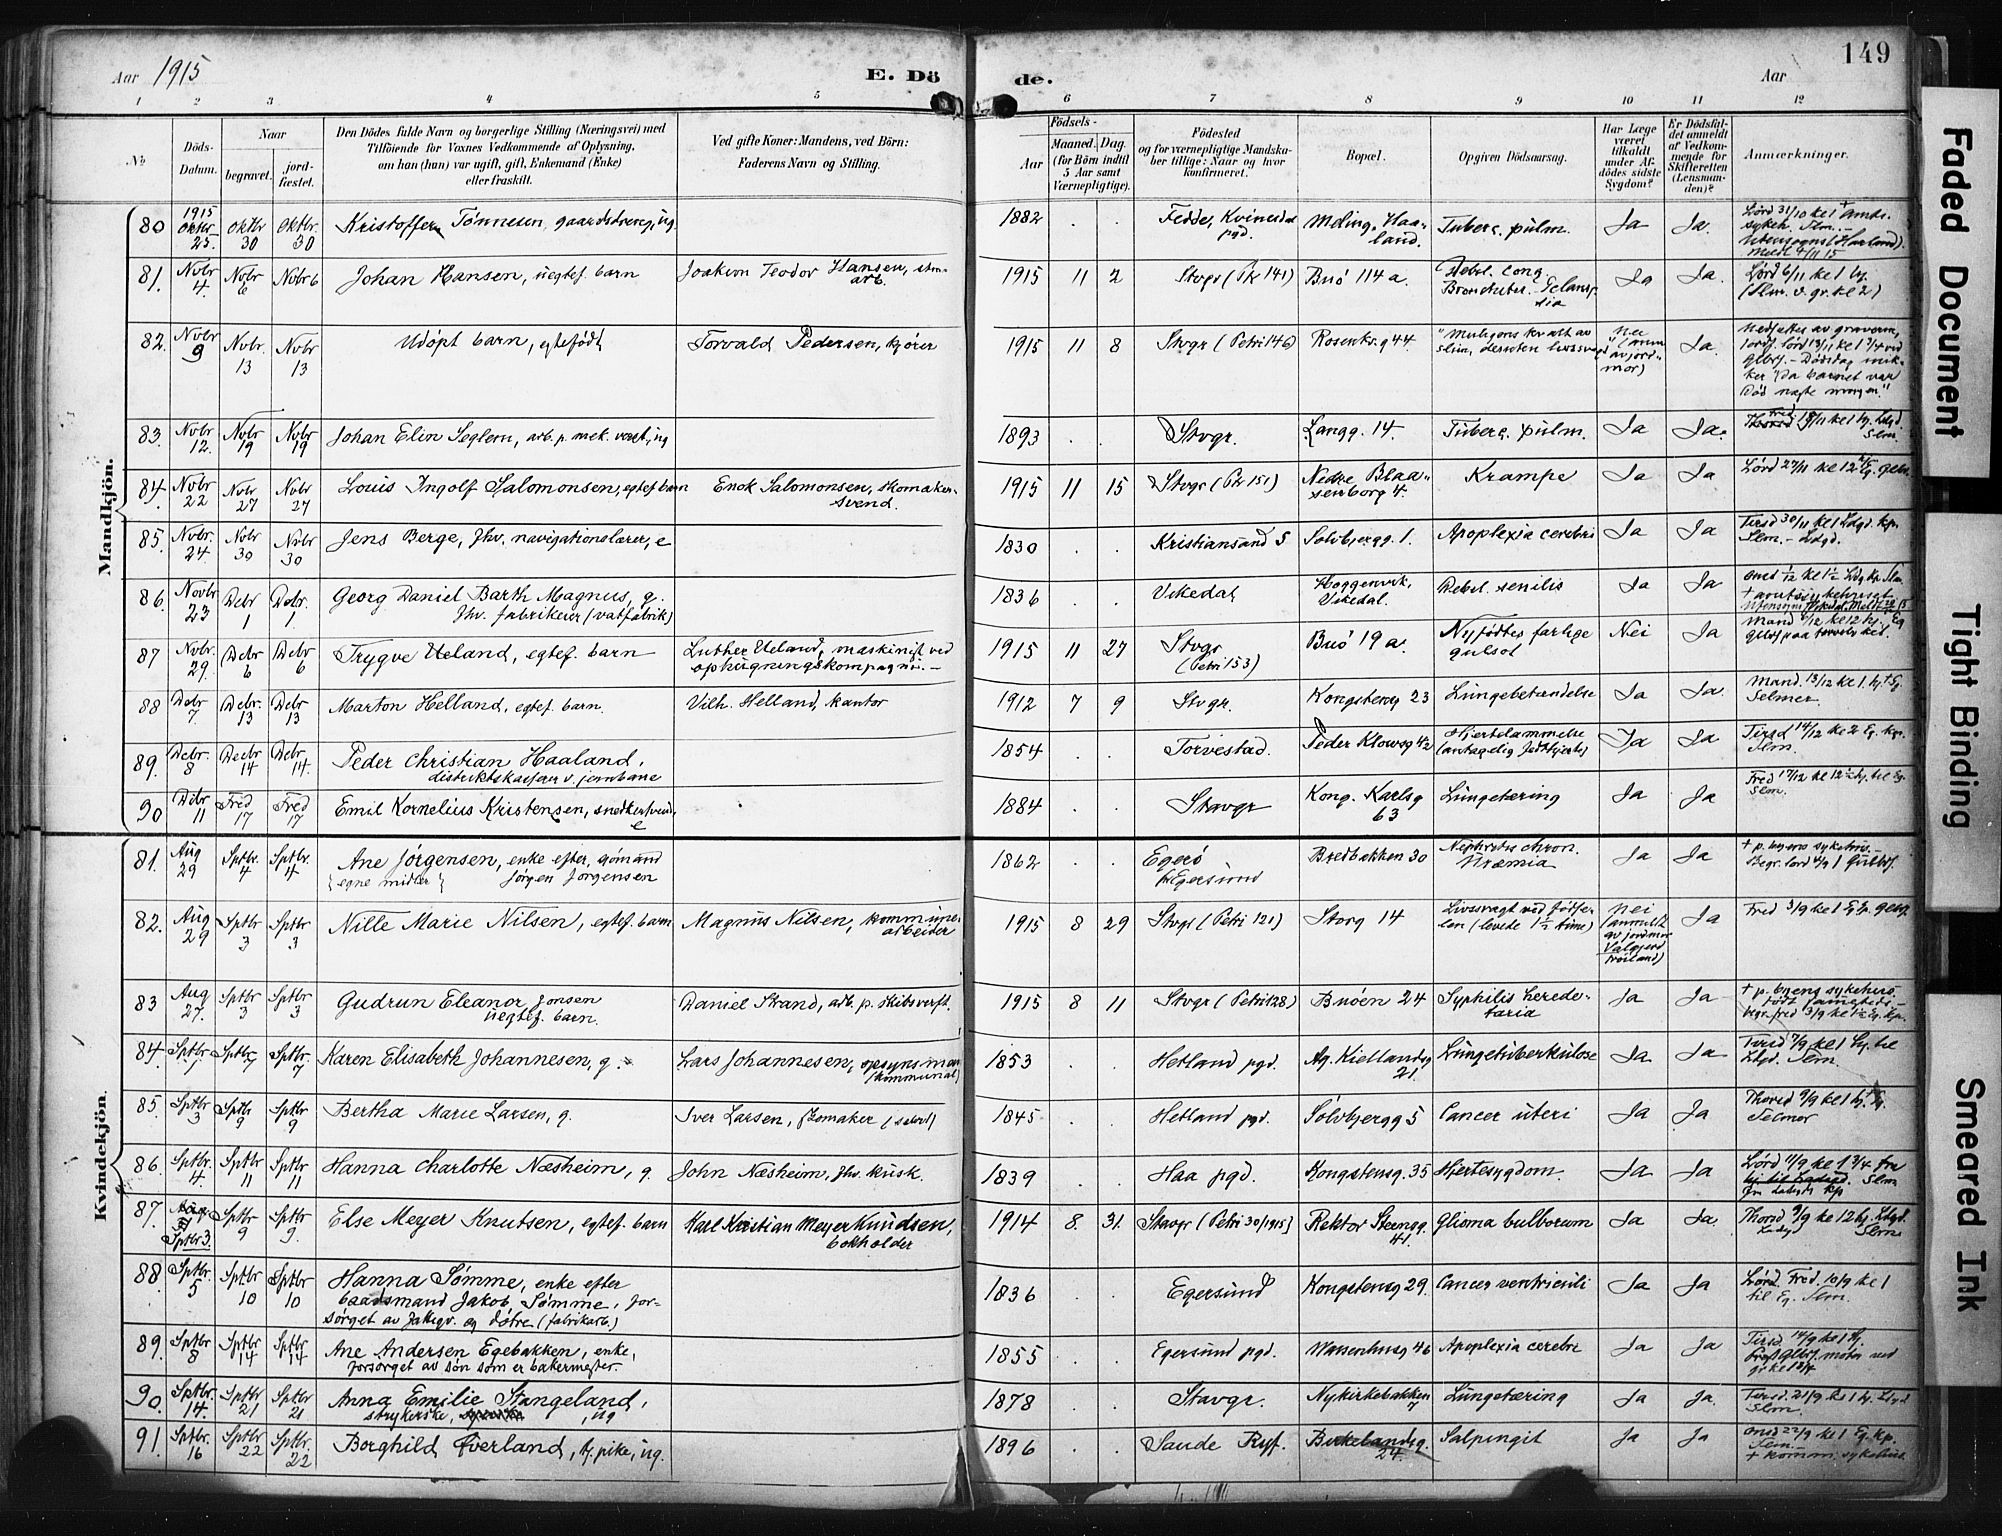 149
Aar 1915
E. Dö
de.
Aar
1 2 3 4 5 6 7 8 9 10 11 12
No
Döds-Datum.
Naar
begravet.
jord-fæstet.
Den Dödes fulde Navn og borgerlige Stilling (Næringsvei) med
Tilföiende for Voxnes Vedkommende af Oplysning,
om han (hun) var ugift, gift, Enkemand (Enke)
eller fraskilt.
Ved gifte Koner: Mandens, ved Börn:
Faderens Navn og Stilling.
Födsels-
Aar
Maaned.
Dag.
(for Börn indtil
5 Aar samt
Værnepligtige).
Födested
og for værnepligtige Mandska-
ber tillige: Naar og hvor
konfirmeret.
Bopæl.
Opgiven Dödsaarsag.
Har Læge
været
tilkaldt
under Af-
dödes sidste
Sygdom?
Er Dödsfal-
det anmeldt
af Vedkom-
mende for
Skifteretten
(Lensman-
den)?
Anmærkninger.
Mandkjön.
80 1915 Oktbr 25. Oktbr 30 Oktbr. 30 Kristoffer Tönnesen, gaardsdreng, ug. 1882 . . Fedde, Kvinesdal pgd. Meling, Haaland. Tuberc. pulm. Ja Ja.
81. Nvbr 4. Nvbr 6 Nvbr 6 Johan Hansen, uegtef. barn Joakim Teodor Hansen, arb. 1915 11 2 Stvgr (Pk 141) Buö 114 a. Ja Ja. Lörd 6/11 kl 1 hj. (Slm. v. gr. kl 2)
82. Nvbr 9 Nvbr. 13 Nvbr 13 Udöpt barn, egtefödt Torvald Pedersen, kjörer 1915 11 8 Stvgr (Petri 146) Rosenkr.g 44. "Muligens kvalt av slim, desuten Nei mor) Ja.
83. Nvbr 12. Nvbr 19 Nvbr 19 Johan Elin Seglem, arb. p. mek. verst., ug 1893 . . Stvgr. Langg. 14. Tuberc. pulm. Ja Ja.
84. Nvbr 22 Nvbr 27 Nvbr 27 Louis Ingolf Salomonsen, egtef. barn Enok Salomonsen, skomaker-svend. 1915 11 15 Stvgr (Pk 151) Nedre Blaasenborg 4. Krampe Ja Ja
85. Nvbr. 24 Nvbr 30 Nvbr 30 Jens Berge, fhv. navigationslærer, e 1830 . . Kristiansand S Sölvbergg. 1. Apoplexia cerebri Ja Ja Tirsd 30/11 kl 1 Ldgd. kp. Slm. - Ldgd.
86. Novbr 23 Debr 1 Debr. 1. Georg Daniel Barth Magnus, g. fhv. fabrikeier (vatfabrik) 1836 . . Vikedal Hoggenvik, Vikedal. Debil. senilis Ja Ja
87 Nvbr. 29. Debr 6 Debr 6 Trygve Ueland, egtef. barn Luther Ueland, maskinist ved ophugningskompagni. 1915 11 27 Stvgr (Petri 153) Buö 19 a. Nyfödtes farlige gulsot Nei Ja
88 Debr 7. Debr. 13 Debr 13 Marton Helland, egtef. barn. Vilh. Helland, kantor 1912 7 9 Stvgr. Kongstensg 23 Lungebetændelse Ja Ja. Mand. 13/12 kl 1. Selmer.
89. Debr. 8 Decbr 14 Debr 14. Peder Christian Haaland, distriktskasserer v. jernbane 1854 . . Torvestad. Peder Klowsg 42 Hjertelammelse (antagelig fedthjerte) Ja Ja Tirsd 14/12 kl 2 Eg. kp. Slm.
90 Debr 11 Fred 17 Fred 17 Emil Kornelius Kristensen, snedkersvend, e 1884 . . Stavgr Kong. Karlsg 63 Lungetæring Ja Ja Fred 17/12 kl 12½ hj. til Eg. Slm.
Kvindekjön.
81. Aug 29 Sptbr. 4 Sptbr. 4 Ane Jörgensen, enke efter sömand Jörgen Jörgensen (egne midler) 1862 . . Egerö Egersund Bredbakken 30 Nephritis chron. Uræmia Ja Ja
82. Aug 29 Sptbr 3 Sptbr. 3 Nille Marie Nilsen, egtef. barn Magnus Nilsen, kommunearbeider 1915 8 29 Stvgr (Petri 121) Storg 14 Livssvagt ved födselen (levede 1½ time) Nei (anmeldt av jordmor Valgjerd Fröiland) Ja
83 Aug 27. Sptbr 3 Sptbr 3 Gudrun Eleanor Jonsen uegtef. barn. Daniel Strand, arb. p. skibsverft. 1915 8 11 Stvgr (Petri 128) Buöen 24 Syphilis heredetaria Ja Ja
84. Sptbr 1 Sptbr 7 Sptbr. 7 Karen Elisabeth Johannesen, g. Lars Johannesen, opsynsman (kommunal) 1853 . . Hetland pgd. Ag. Kiellandsg 21. Lungetuberkulose Ja. Ja Tirsd 7/9 kl 1 hj. til Ldgd. Slm.
85. Sptbr 3 Sptbr. 9 Sptbr 9 Bertha Marie Larsen, g. Iver Larsen, skomaker (selvst) 1845 . . Hetland pgd. Sölvbjergg 5 Cancer uteri Ja Ja Thorsd 9/9 kl 1 hj. Selmer
86. Sptbr. 4 Sptbr 11 Sptbr 11 Hanna Charlotte Næsheim, g. John Næsheim, fhv. kusk. 1839 . . Haa pgd. Kongstensg. 35 Hjertesygdom. Ja Ja Lörd 11/9 kl 1 3/4 fra Slm
87. Sptbr 3. Sptbr 9 Sptbr. 9. Else Meyer Knutsen, egtef. barn Karl Kristian Meyer Knudsen, bokholder 1914 8. 31. Stavgr (Petri 30/1915) Rektor Stensg. 41. Glioma bulborum Ja Ja. Thorsd 9/9 kl 12 hj. Ldgd. Slm
88 Sptbr. 5 Sptbr 10 Sptbr 10 Hanna Sömme, enke efter baadsmand Jakob Sömme, forsörget av fattigv. og dötre (fabrikarb.) 1836 . . Egersund Kongstensg 29. Cancer ventriculi Ja Ja Lörd. Fred. 10/9 kl 1 til Eg. Slm.
89. Sptbr 8 Sptbr 14 Sptbr 14 Ane Andersen Egebakken, enke, forsörget av sön som er bakermester. 1855 . . Egersund pgd. Waisenhusg 46 Apoplexia cerebri Ja Ja
90. Sptbr. 14. Sptbr 21 Sptbr 21 Anna Emilie Stangeland, strykerske, ug 1878 . . Stavgr. Nykirkebakken 7 Lungetæring Ja Ja. Tirsd. 21/9 kl 1 hj. Ldgd Slm.
91. Sptbr. 16 Sptbr 22 Sptbr. 22 Borghild Överland, tj. pike, ug. 1896 . . Saude Ryf. Birkelandsg. 24. Salpingit Ja Ja Onsd 22/9 kl 1 Eg. kp. Slm. + komm. sykehus
Faded Document
Tight Binding
Smeared Ink